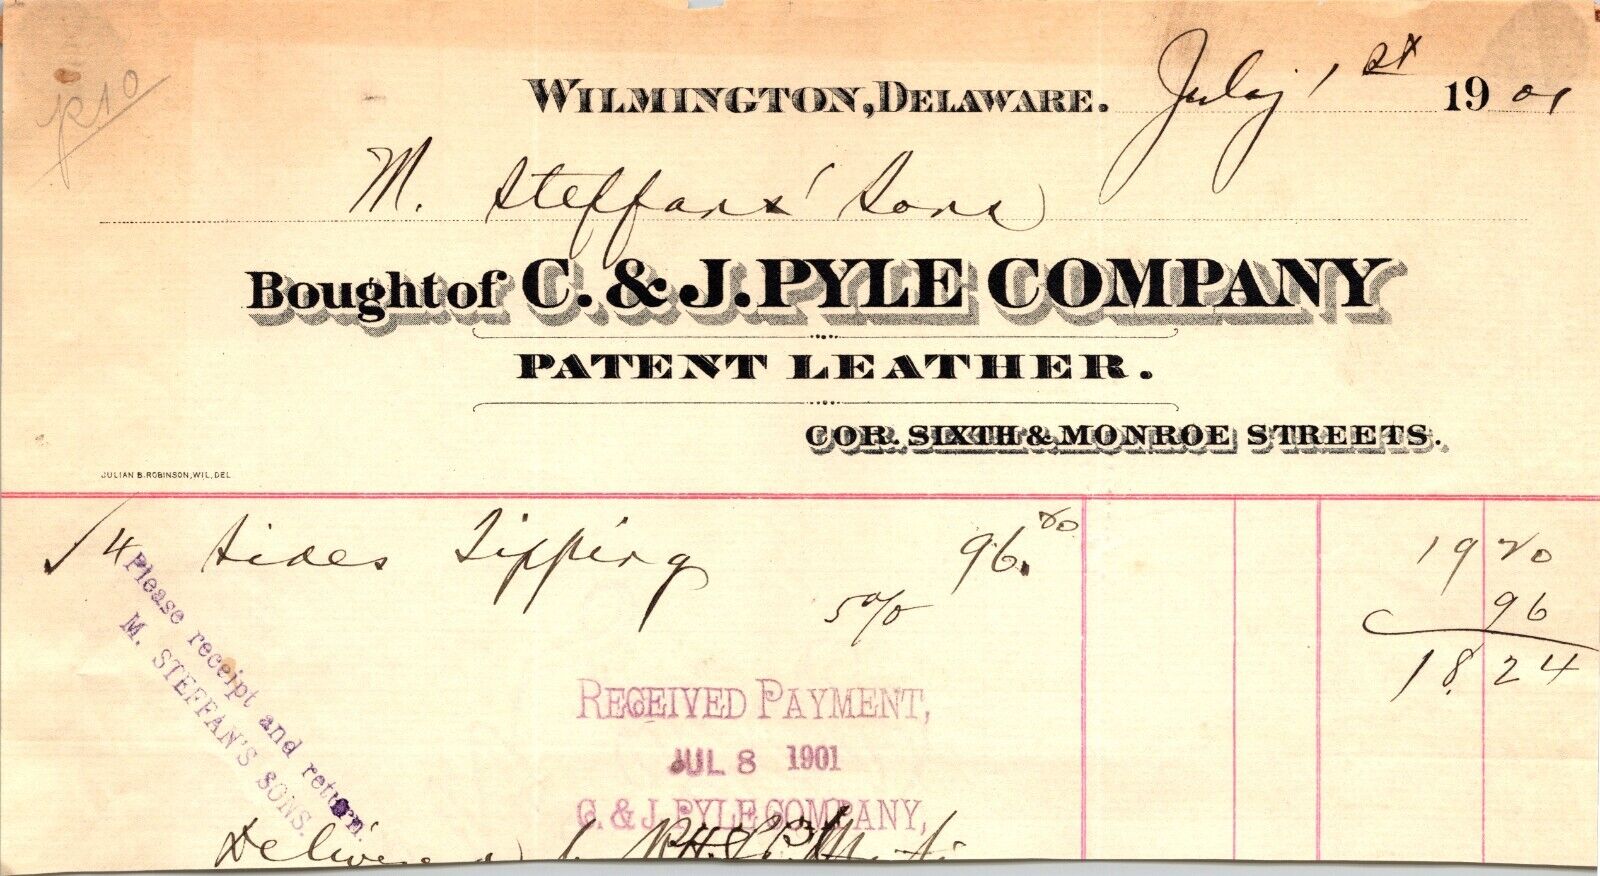 R10
WILMINGTON, DELAWARE. July 1st 1901
M. Steffans' Sons
Bought of C. & J. PYLE COMPANY
PATENT LEATHER.
COR. SIXTH & MONROE STREETS.
JULIAN B. ROBINSON, WIL, DEL
4 Sides Tipping 96.00 19 20
5% 96
18.24
Please receipt and return
M. STEFFAN'S SONS.
RECEIVED PAYMENT,
JUL 8 1901
C. & J. PYLE COMPANY,
Delivered